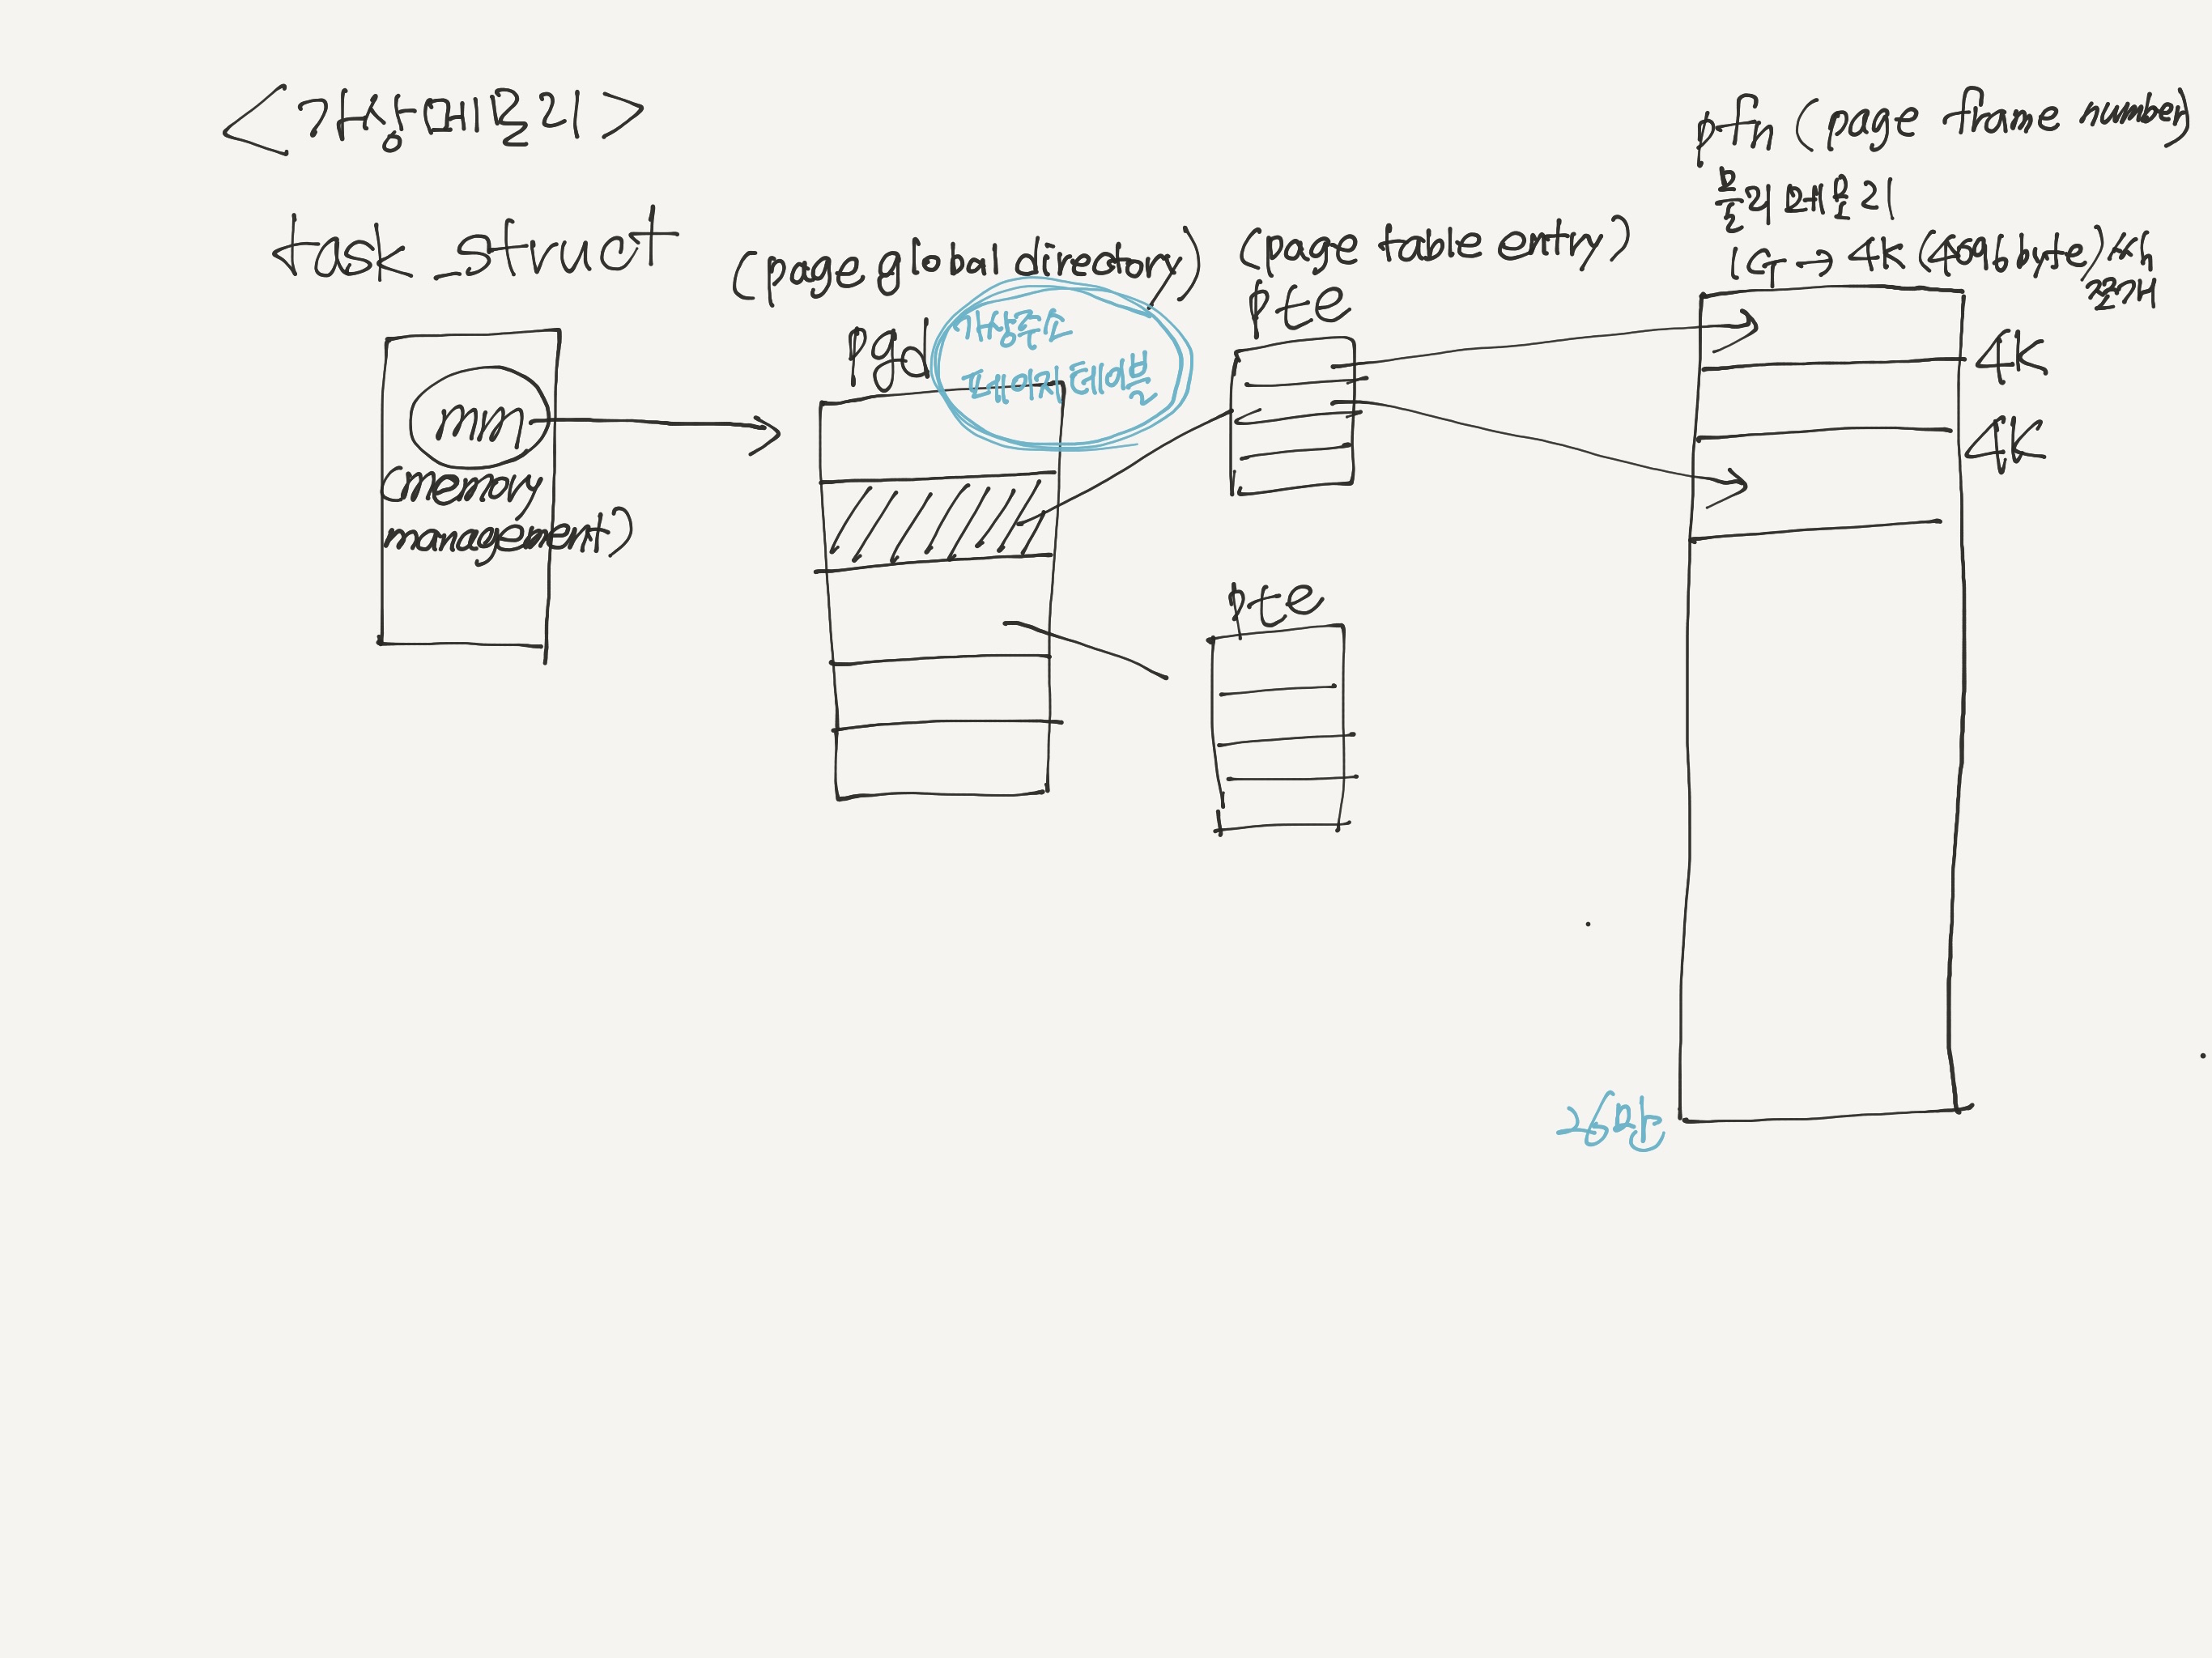 <가상메모리>
task_struct
mm
(memory
management)
(page global directory)
pgd
가상주소
페이지 테이블
(page table entry)
pte
pte
pfn (page frame number)
물리 메모리
1G → 4K (4096 byte)씩
쪼개
4K
4K
26만